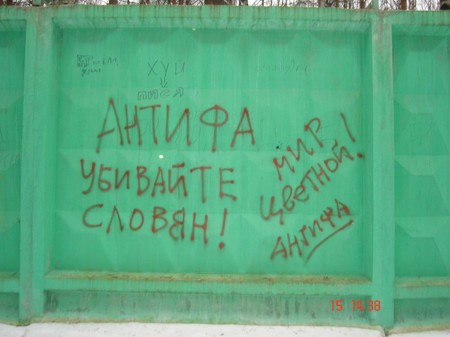 ХУЙ
АНТИФА
УБИВАЙТЕ
СЛОВЯН!
МИР
ЦВЕТНОЙ!
АНТИФА
15 14:38